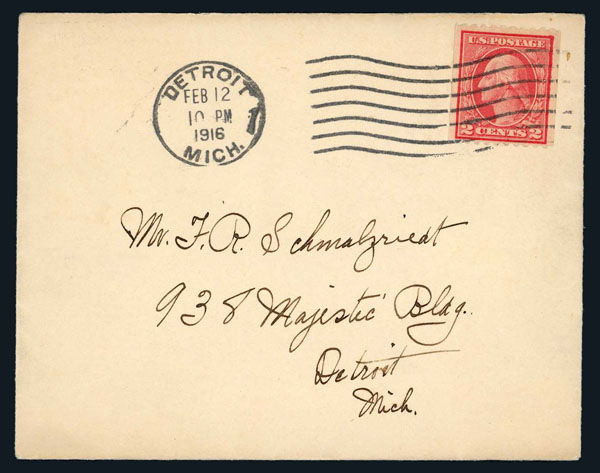 DETROIT 1
FEB 12
10 PM
1916
MICH.
U.S. POSTAGE
2 CENTS 2
Mr. F. R. Schmalzriedt
938 Majestic Bldg.
Detroit
Mich.